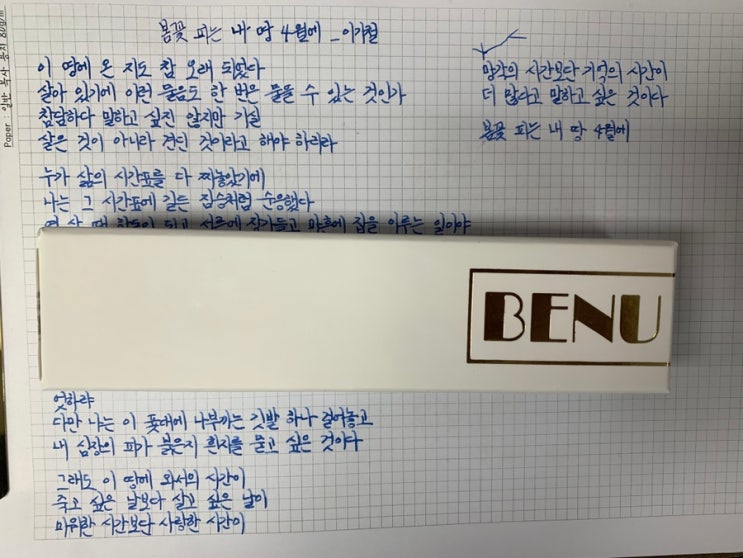 Paper : 일반 복사 용지 80g/㎡
봄꽃 피는 내 땅 4월에 _이기철
이 땅에 온 지도 참 오래 되었다
살아 있기에 이런 물음도 한 번은 물을 수 있는 것인가
참담하다 말하고 싶진 않지만 기실
살은 것이 아니라 견딘 것이라고 해야 하리라
누가 삶의 시간표를 다 짜놓았기에
나는 그 시간표에 길든 짐승처럼 순응했다
열 살 때 학동이 되고 서른에 장가들고 마흔에 집을 이루는 일이야
BENU
엇하랴
다만 나는 이 풋대에 나부끼는 깃발 하나 걸어놓고
내 심장의 피가 붉은지 흰지를 묻고 싶은 것이다
그래도 이 땅에 와서의 시간이
죽고 싶은 날보다 살고 싶은 날이
미워한 시간보다 사랑한 시간이
망각의 시간보다 기억의 시간이
더 많다고 말하고 싶은 것이다
봄꽃 피는 내 땅 4월에